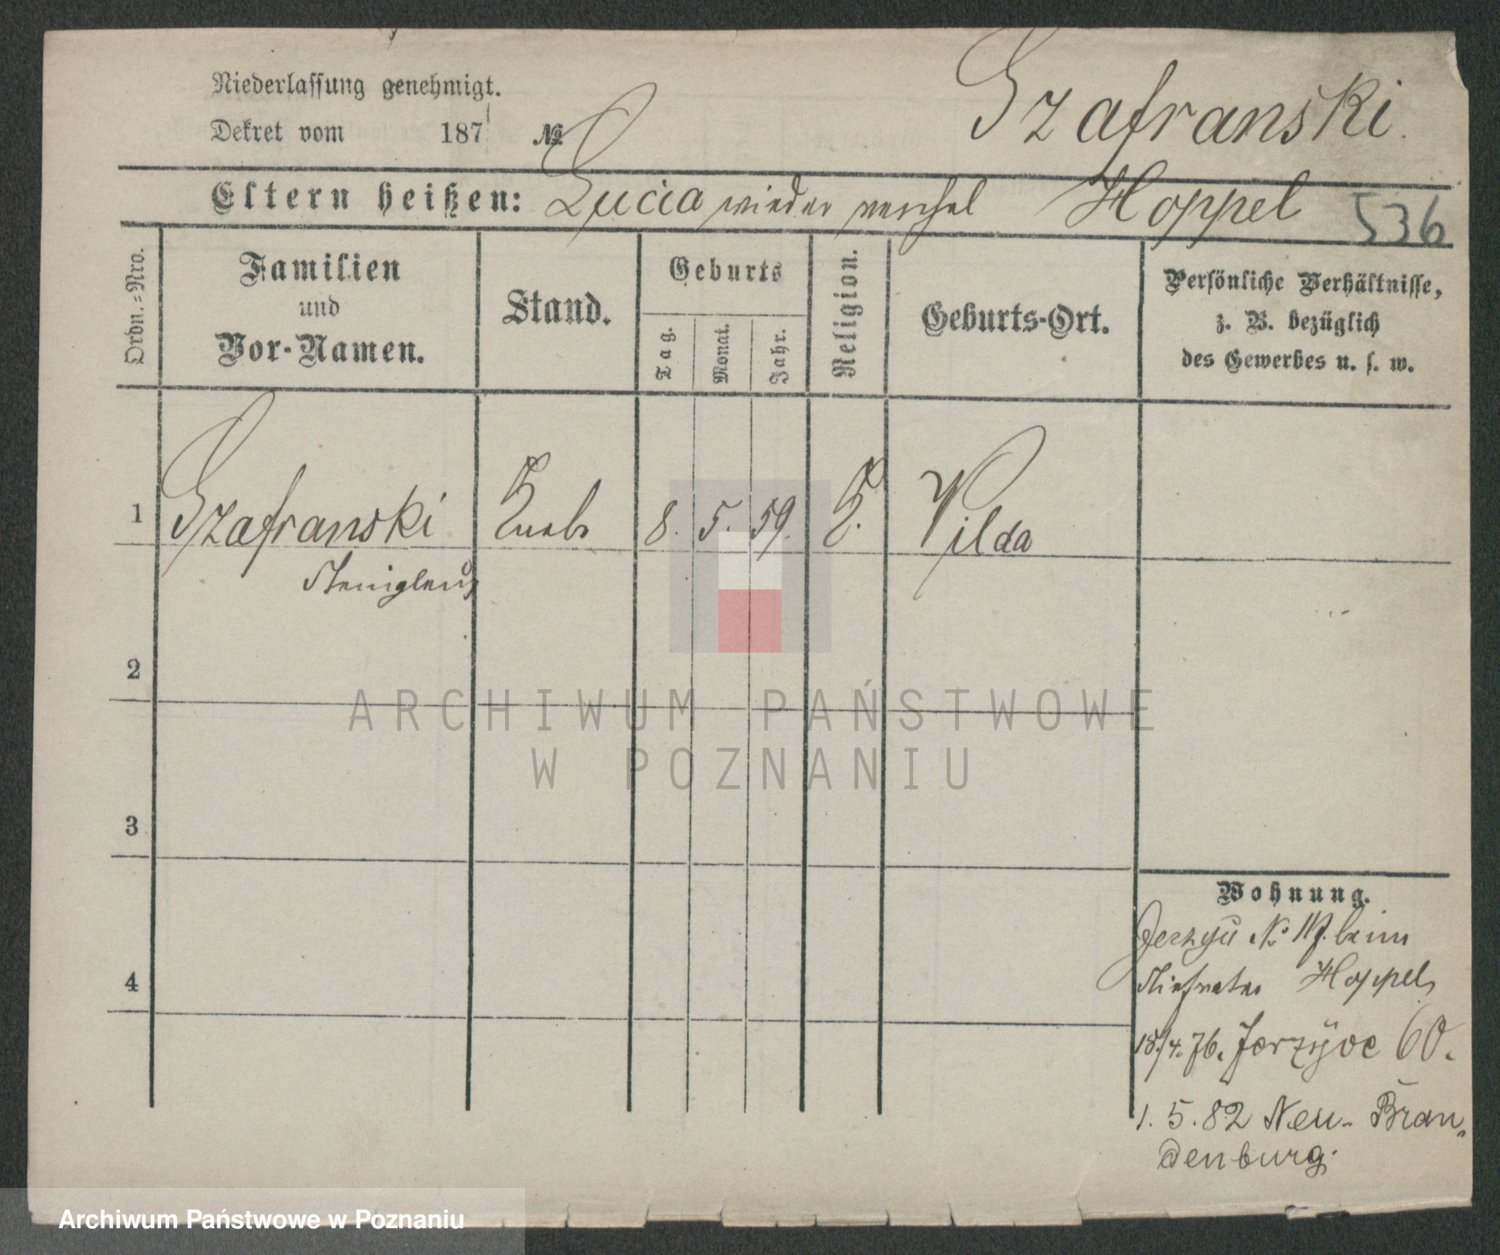 Niederlassung genehmigt.
Szafranski.
Dekret vom 187 №
Eltern heißen: Lucia wieder verehel Hoppel
536
Ordn.=Nro.
Familien
und
Vor-Namen.
Stand.
Geburts
Tag.
Monat.
Jahr.
Religion.
Geburts-Ort.
Persönliche Verhältnisse,
z. B. bezüglich
des Gewerbes u. s. w.
1 Szafranski Knabe 8. 5. 59. K. Wilda
2
ARCHIWUM PAŃSTWOWE
W POZNANIU
3
Wohnung.
beim
4
Stiefvater Hoppel,
18/4. 76. Jerzyce 60.
1. 5. 82 Neu-Bran-
denburg.
Archiwum Państwowe w Poznaniu